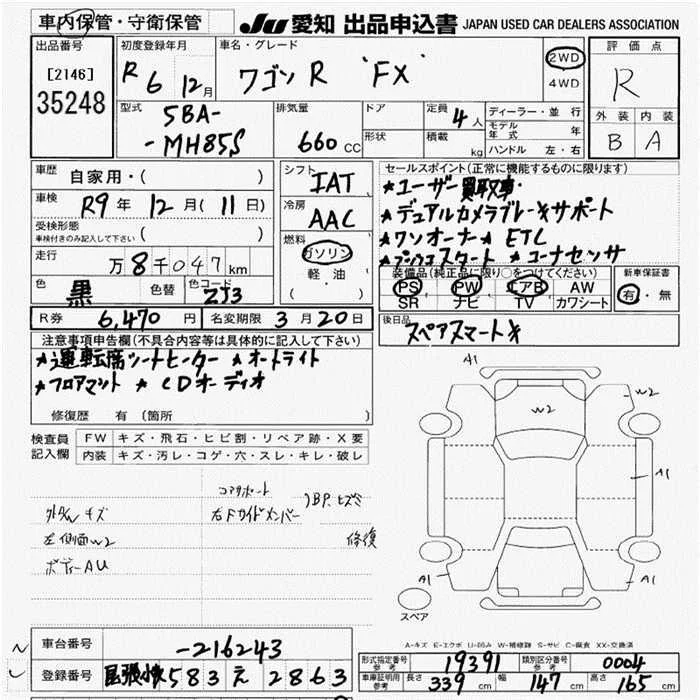 車内保管・守衛保管
JU 愛知 出品申込書 JAPAN USED CAR DEALERS ASSOCIATION
出品番号
[2146]
35248
初度登録年月
R 6 12月
車名・グレード
ワゴンR 'FX'
2WD
4WD
評価点
R
外装 内装
B A
型式
5BA-
-MH85S
排気量
660 CC
ドア
形状
定員 4人
積載 kg
ディーラー・並行
モデル年式 年
ハンドル 左・右
車歴
自家用・( )
車検
R9年 12月(11日)
受検形態
車検付きのみ記入して下さい ( )
走行
万8千047km
色
黒
色替
色コード
ZJ3
シフト
IAT
冷房
AAC
燃料
ガソリン
軽油
( )
セールスポイント(正常に機能するものに限ります)
★ユーザー買取車・
★デュアルカメラブレーキサポート
★ワンオーナー★ ETC
★プッシュスタート ★コーナセンサ
装備品(純正品に限り○をつけてください)
PS PW エアB AW
SR ナビ TV カワシート
新車保証書
有・無
R券 6,470円 名変期限 3月20日
後日品
スペアスマートキ
注意事項申告欄(不具合内容等は具体的に記入して下さい)
★運転席シートヒーター ★オートライト
★フロアマット ★CDオーディオ
修復歴 有(箇所 )
検査員記入欄
FW キズ・飛石・ヒビ割・リペア跡・X要
内装 キズ・汚レ・コゲ・穴・スレ・キレ・破レ
コアサポート
右Fサイドメンバー
修復
外板 キズ
左側面W2
ボディーAU
A1
W2
W2
A1
A1
A1
スペア
A-キズ E-エクボ U-凹み W-補修跡 S-サビ C-腐食 XX-交換済
車台番号
-216243
登録番号
尾張小牧 583 え 2863
型式指定番号 参考 19391
類別区分番号 参考 0004
車庫証明用 参考 長さ 339cm 幅 147cm 高さ 165cm